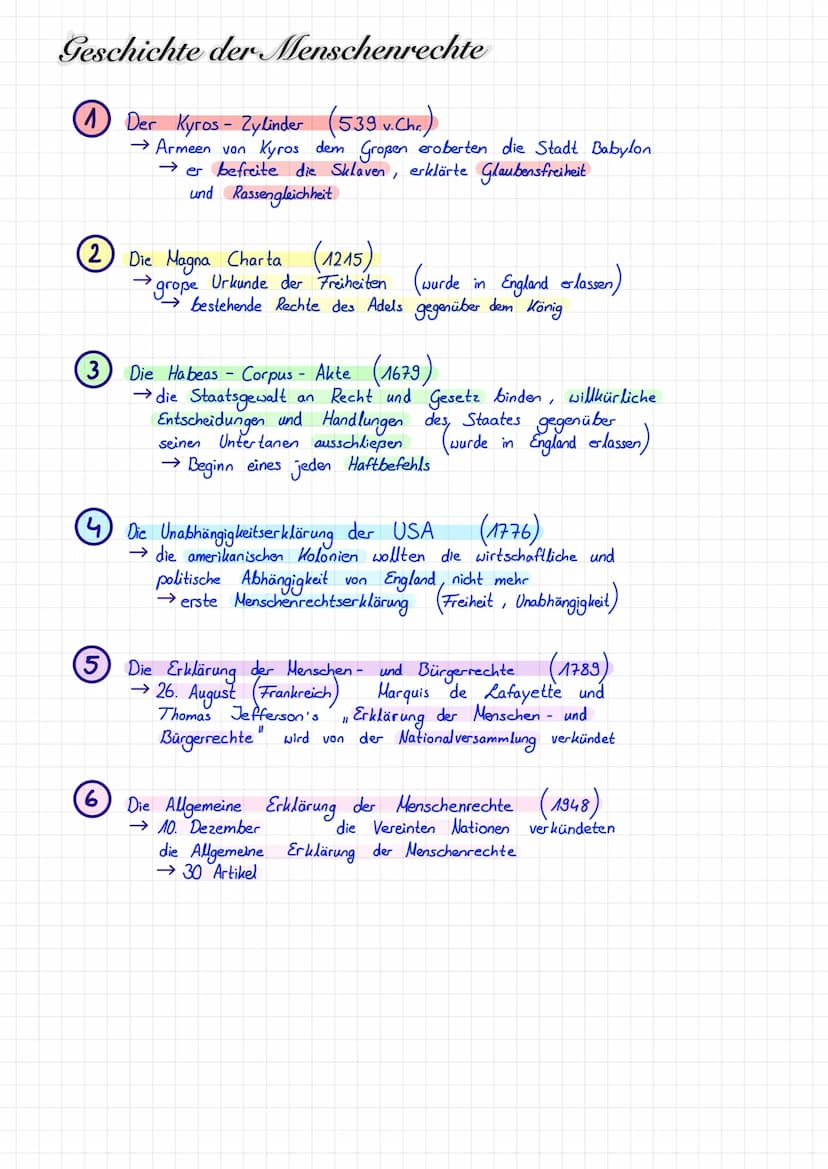 Geschichte der Menschenrechte
1 Der Kyros - Zylinder (539 v.Chr.)
→ Armeen von Kyros dem Großen eroberten die Stadt Babylon
→ er befreite die Sklaven, erklärte Glaubensfreiheit
und Rassengleichheit
2 Die Magna Charta (1215)
→ große Urkunde der Freiheiten (wurde in England erlassen)
→ bestehende Rechte des Adels gegenüber dem König
3 Die Habeas - Corpus - Akte (1679)
→ die Staatsgewalt an Recht und Gesetz binden, willkürliche
Entscheidungen und Handlungen des Staates gegenüber
seinen Untertanen ausschließen (wurde in England erlassen)
→ Beginn eines jeden Haftbefehls
4 Die Unabhängigkeitserklärung der USA (1776)
→ die amerikanischen Kolonien wollten die wirtschaftliche und
politische Abhängigkeit von England nicht mehr
→ erste Menschenrechtserklärung (Freiheit, Unabhängigkeit)
5 Die Erklärung der Menschen - und Bürgerrechte (1789)
→ 26. August (Frankreich) Marquis de Lafayette und
Thomas Jefferson's „Erklärung der Menschen - und
Bürgerrechte" wird von der Nationalversammlung verkündet
6 Die Allgemeine Erklärung der Menschenrechte (1948)
→ 10. Dezember die Vereinten Nationen verkündeten
die Allgemeine Erklärung der Menschenrechte
→ 30 Artikel